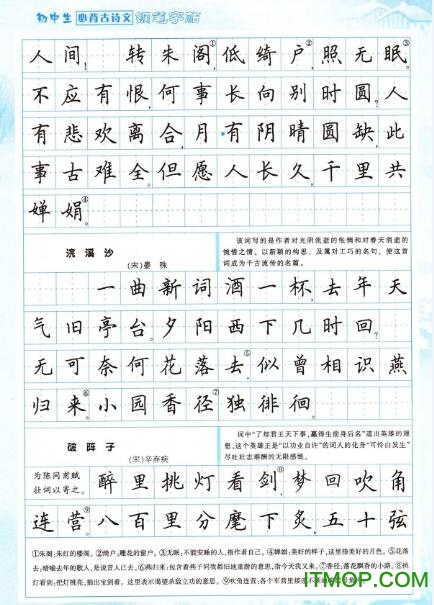 初中生 必背古诗文 钢笔字帖
人间！ 转朱阁，①低绮户，②照无眠。③
不应有恨，何事长向别时圆？人
有悲欢离合，月有阴晴圆缺，此
事古难全。但愿人长久，千里共
婵娟。④
浣溪沙
(宋)晏 殊
该词写的是作者对光阴流逝的怅惘和对春天消逝的
惋惜之情。以新颖的构思，及属对工巧的名句，使这首
词成为千古流传的名篇。
一曲新词酒一杯，去年天
气旧亭台。夕阳西下几时回？
无可奈何花落去，⑤似曾相识燕
归来。⑥小园香径⑦独徘徊。
破阵子
(宋)辛弃疾
词中“了却君王天下事，赢得生前身后名”道出英雄的理
想，这个英雄正是“以功业自许”的词人的化身“可怜白发生”
尽吐壮志难酬的无限感慨。
为陈同甫赋
壮词以寄之。
醉里挑灯看剑，⑧梦回吹角
连营。⑨八百里分麾下炙，五十弦
①朱阁：朱红的楼阁。②绮户：雕花的窗户。③无眠：不能安睡的人，指作者自己。④婵娟：美好的样子，这里指美好的月色。⑤花落
去：暗喻去年的歌人，是说昔人已去。⑥燕归来：包含着燕子同我都旧地重游的意思，指今天我又来。⑦香径：落花飘香的小路。⑧挑
灯看剑：把灯挑亮，抽出宝剑看。这里表示渴望杀敌立功的意思。⑨吹角连营：各个军营里接连不断
ITMOP.COM